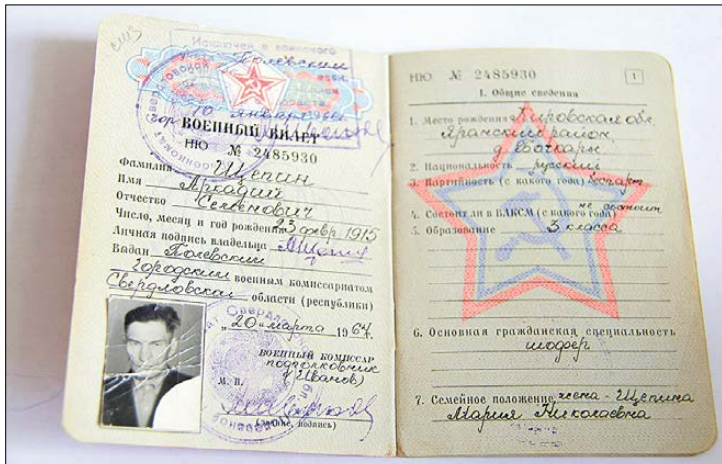 СИЗ
Исключен с воинского
Полевским
10 января 196
ВОЕННЫЙ БИЛЕТ
НЮ № 2485930
Фамилия Щепин
Имя Аркадий
Отчество Семенович
Число, месяц и год рождения 23 февр. 1915
Личная подпись владельца АЩепин
Выдан Полевским
городским военным комиссариатом
Свердловской области (республики)
"20" марта 1964
ВОЕННЫЙ КОМИССАР
подполковник
(Иванов)
М. П.
подпись)
НЮ № 2485930
1
I. Общие сведения
1. Место рождения Кировская обл.
Яранский район,
д. Бочкари
2. Национальность русский
3. Партийность (с какого года) беспарт.
не состоит
4. Состоял ли в ВЛКСМ (с какого года)
5. Образование 3 класса
6. Основная гражданская специальность
шофер
7. Семейное положение жена - Щепина
Мария Николаевна